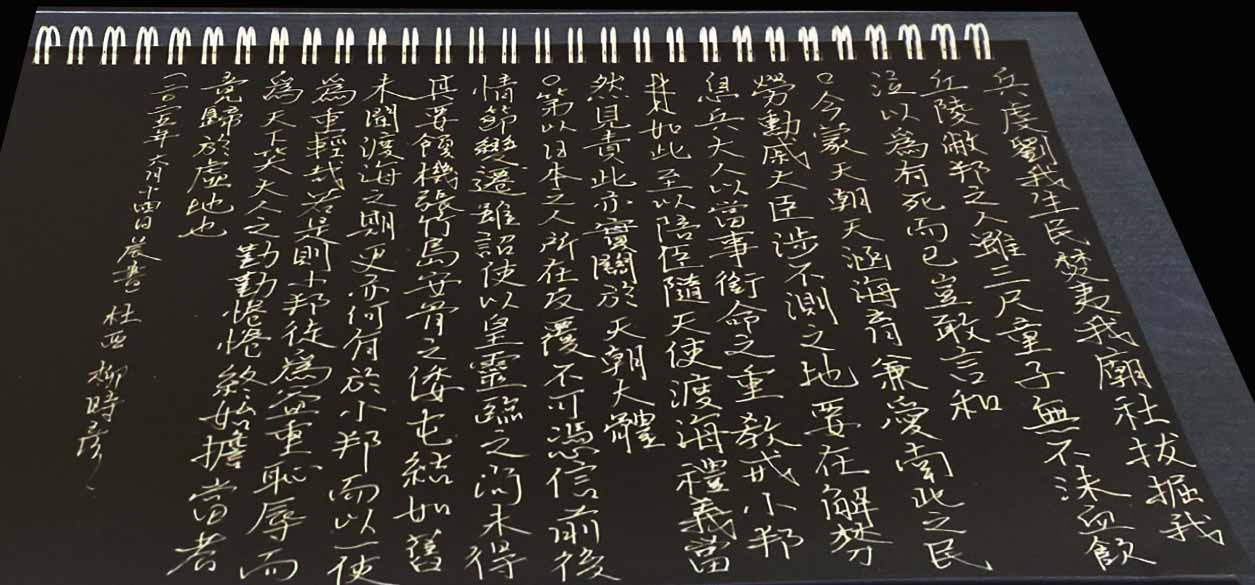 兵虔劉我生民焚夷我廟社拔掘我
丘陵敝邦之人雖三尺童子無不沬血飲
泣以爲有死而已豈敢言和
○今蒙天朝天涵海育兼愛南北之民
勞動戚大臣涉不測之地要在解焚
息兵大人以當事銜命之重敎戒小邦
其如此至以陪臣隨天使渡海禮義當
然見責此亦實關於天朝大體
○第以日本之人所在反覆不可憑信前後
情節變遷雖詔使以皇靈臨之尚未得
其要領機張竹島安骨之倭屯結如舊
未聞渡海之期更亦何有於小邦而以一使
爲重輕哉若是則小邦徒爲無重恥辱而
爲天下笑大人之勤勤惓惓終始擔當者
竟歸於虛地也
二〇二五年 六月十四日 晨書 杜西 柳時彦